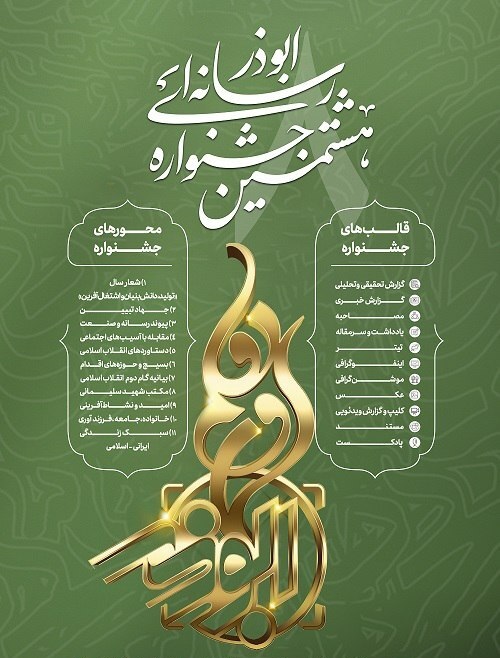 هشتمین جشنواره
رسانه‌ای
ابوذر
قالب‌های
جشنواره
گزارش تحقیقی و تحلیلی
گزارش خبری
مصاحبه
یادداشت و سرمقاله
تیتر
اینفوگرافی
موشن‌گرافی
عکس
کلیپ و گزارش ویدئویی
مستند
پادکست
محورهای
جشنواره
۱) شعار سال
«تولید، دانش‌بنیان و اشتغال‌آفرین»
۲) جهاد تبیین
۳) پیوند رسانه و صنعت
۴) مقابله با آسیب‌های اجتماعی
۵) دستاوردهای انقلاب اسلامی
۶) بسیج و حوزه‌های اقدام
۷) بیانیه گام دوم انقلاب اسلامی
۸) مکتب شهید سلیمانی
۹) امید و نشاط‌آفرینی
۱۰) خانواده، جامعه، فرزندآوری
۱۱) سبک زندگی
ایرانی - اسلامی
ابوذر